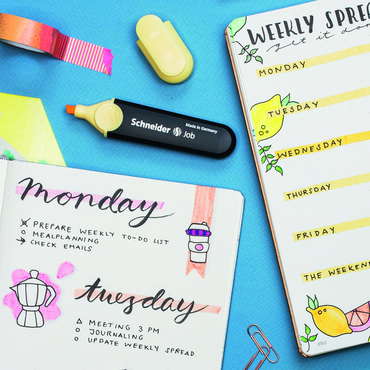 WEEKLY SPREAD
get it done
MONDAY
TUESDAY
WEDNESDAY
THURSDAY
FRIDAY
THE WEEKEND
Schneider Job
Made in Germany
monday
PREPARE WEEKLY TO-DO LIST
MEALPLANNING
CHECK EMAILS
tuesday
MEETING 3 PM
JOURNALING
UPDATE WEEKLY SPREAD